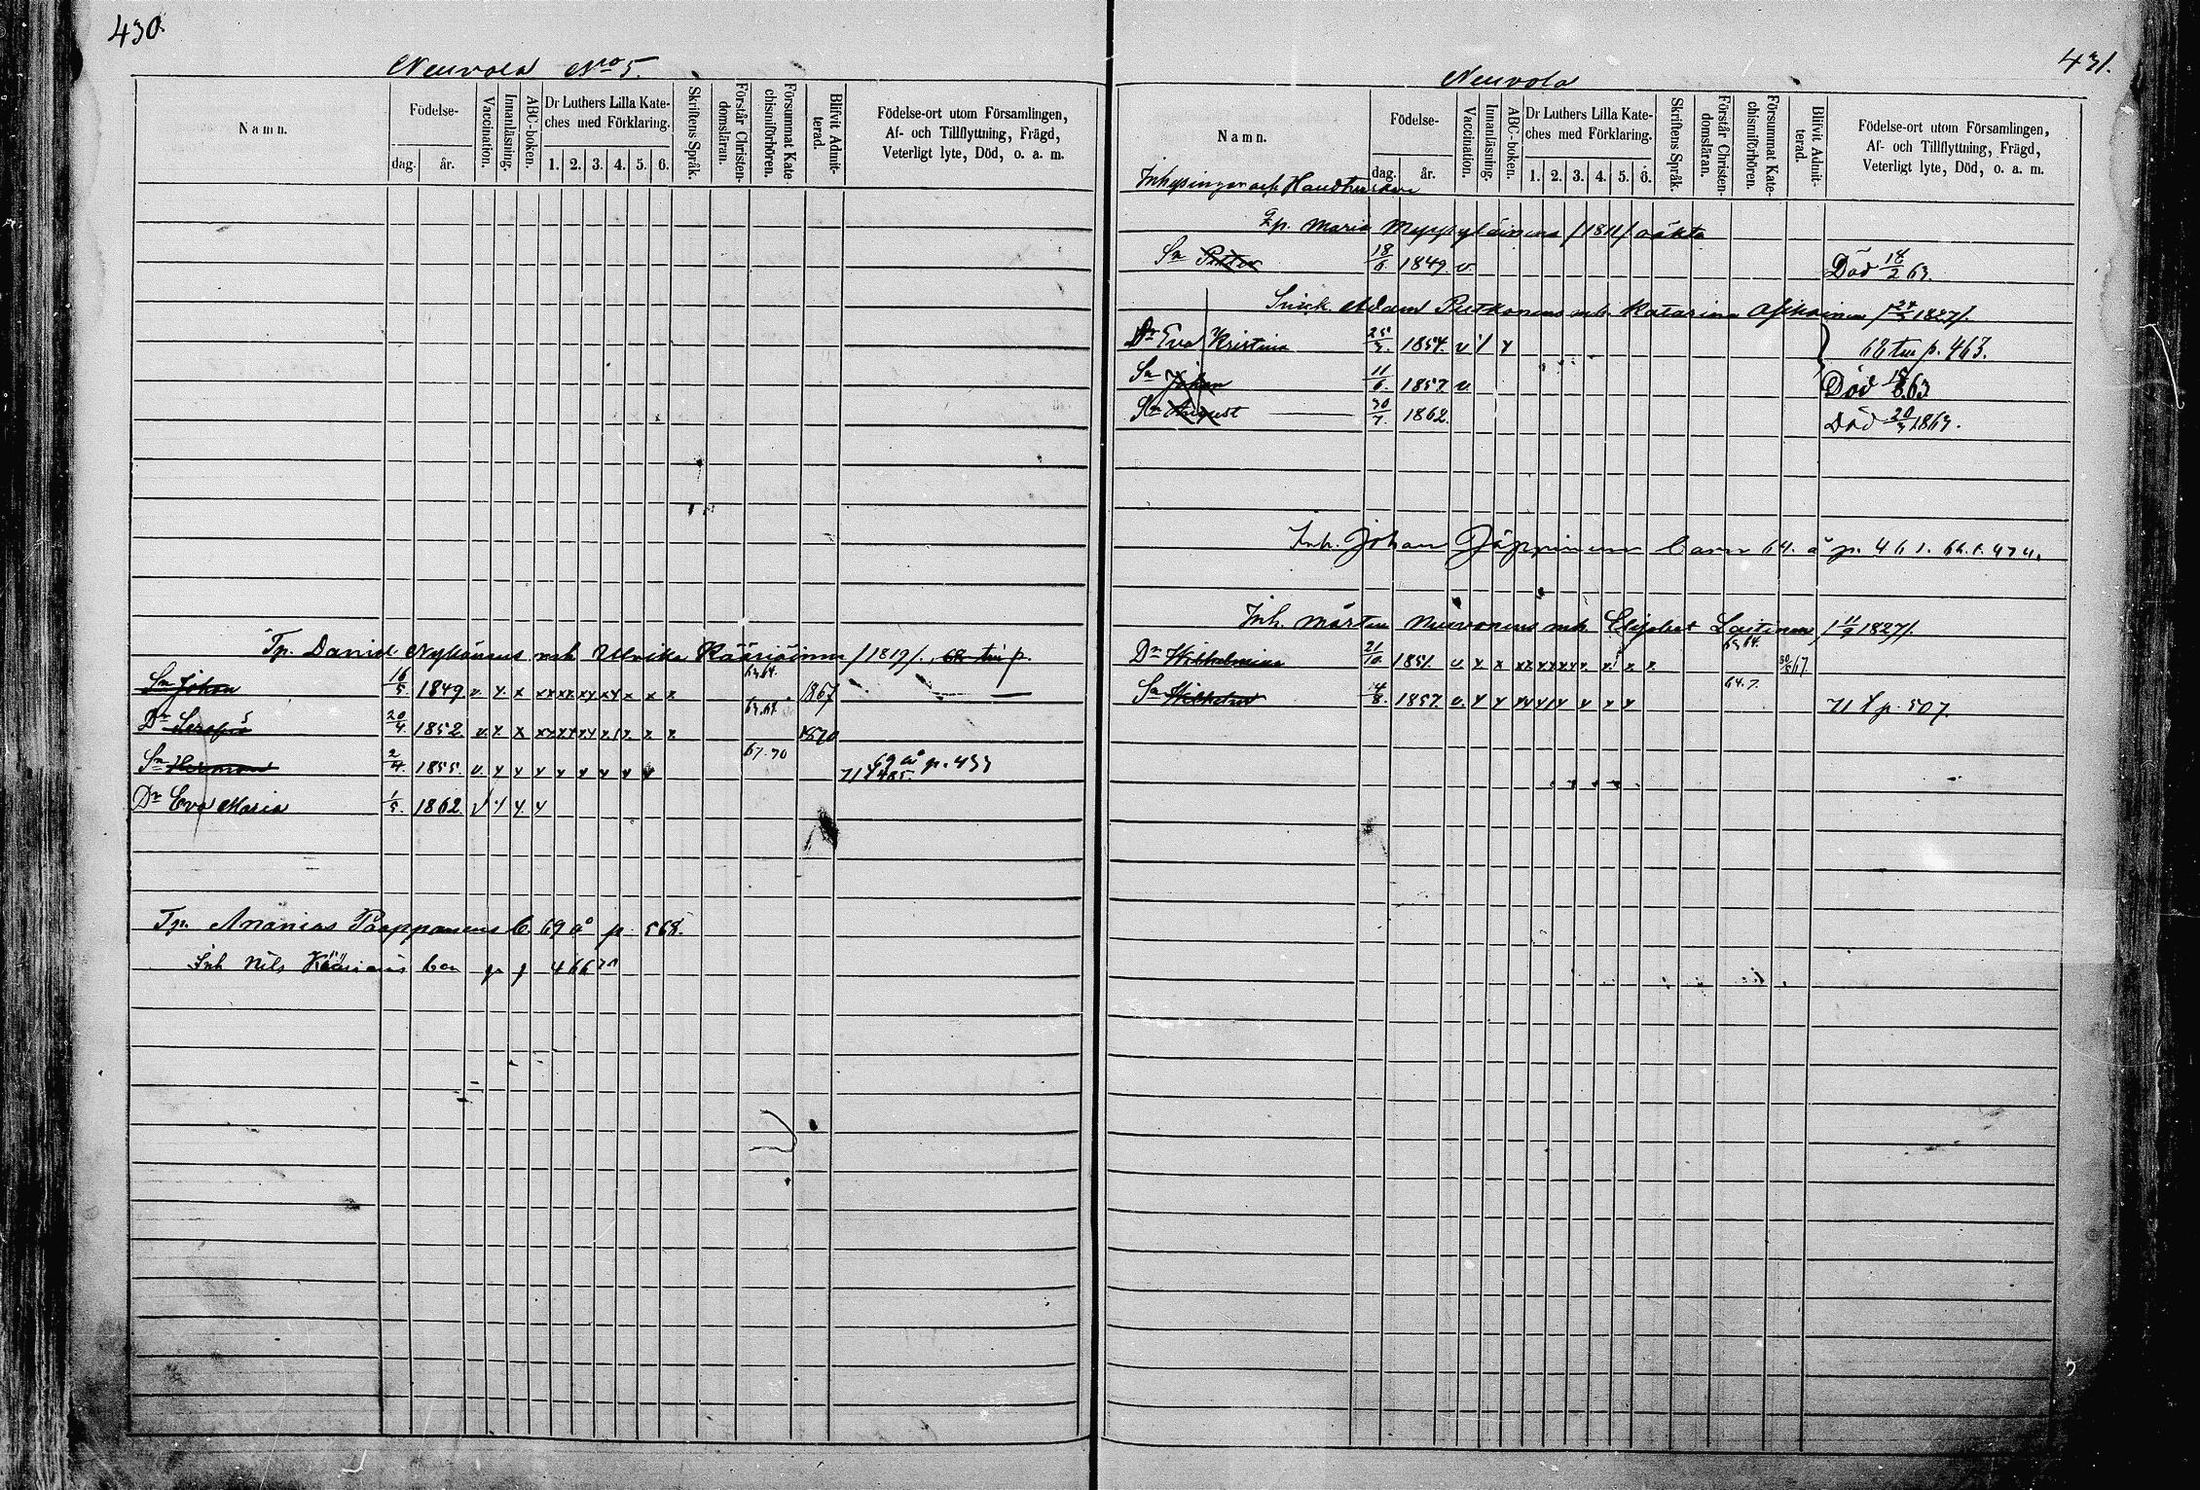 430.
Neuvola No 5.
Namn.
Födelse-
dag.
år.
Vaccination.
Innanläsning.
ABC-boken.
Dr Luthers Lilla Kate-
ches med Förklaring.
1. 2. 3. 4. 5. 6.
Skriftens Språk.
Förstår Christen-
domsläran.
Försummat Kate-
chismiförhören.
Blifvit Admit-
terad.
Födelse-ort utom Församlingen,
Af- och Tillflyttning, Frägd,
Veterligt lyte, Död, o. a. m.
Tp. Daniel Nykänens mh Ulrika Kääriäinen /1819/. 68 p.
Sn Johan 16/5 1849 v. x x xx xx xy xx x x x 63.64. 1867
Dr Serafia 20/4 1852 v. x x x x x x 63.64. 1870
Sn Herman 2/4 1855. v. y y y y y y y y 67.70 69 å p. 433
71 485.
Dr Eva Maria 1/5. 1862
Tp. Ananias Paappanens b 69 å p 568.
Inh Nils bar p 466
431.
Neuvola
Namn.
Födelse-
dag.
år.
Vaccination.
Innanläsning.
ABC-boken.
Dr Luthers Lilla Kate-
ches med Förklaring.
1. 2. 3. 4. 5. 6.
Skriftens Språk.
Förstår Christen-
domsläran.
Försummat Kate-
chismiförhören.
Blifvit Admit-
terad.
Födelse-ort utom Församlingen,
Af- och Tillflyttning, Frägd,
Veterligt lyte, Död, o. a. m.
Inhysingar och Handtverkare
Qp. Maria Myyryläinens /1811/ oäkta
Sn Petter 18/6 1849 v. Död 18/2 63.
Snick. Adam Putkonens mh. Katarina Asikainen /24/5 1827/.
Dr Eva Kristina 25/3. 1854. v 68 p. 463.
Sn Johan 11/6. 1857 v. Död 63
Sn August 30/7. 1862. Död 20/3 1863.
Inh. Johan Jäppinens barn 64. å p. 461.
Inh. Mårten Neuvonens mh. Elisabet Laitinen /11/9 1827/.
Dr Wilhelmina 21/10. 1851. v. x x 63.64. 30/5 67
Sn Wilhelm 4/8. 1857. v. y y 64.7. 71 p. 507.